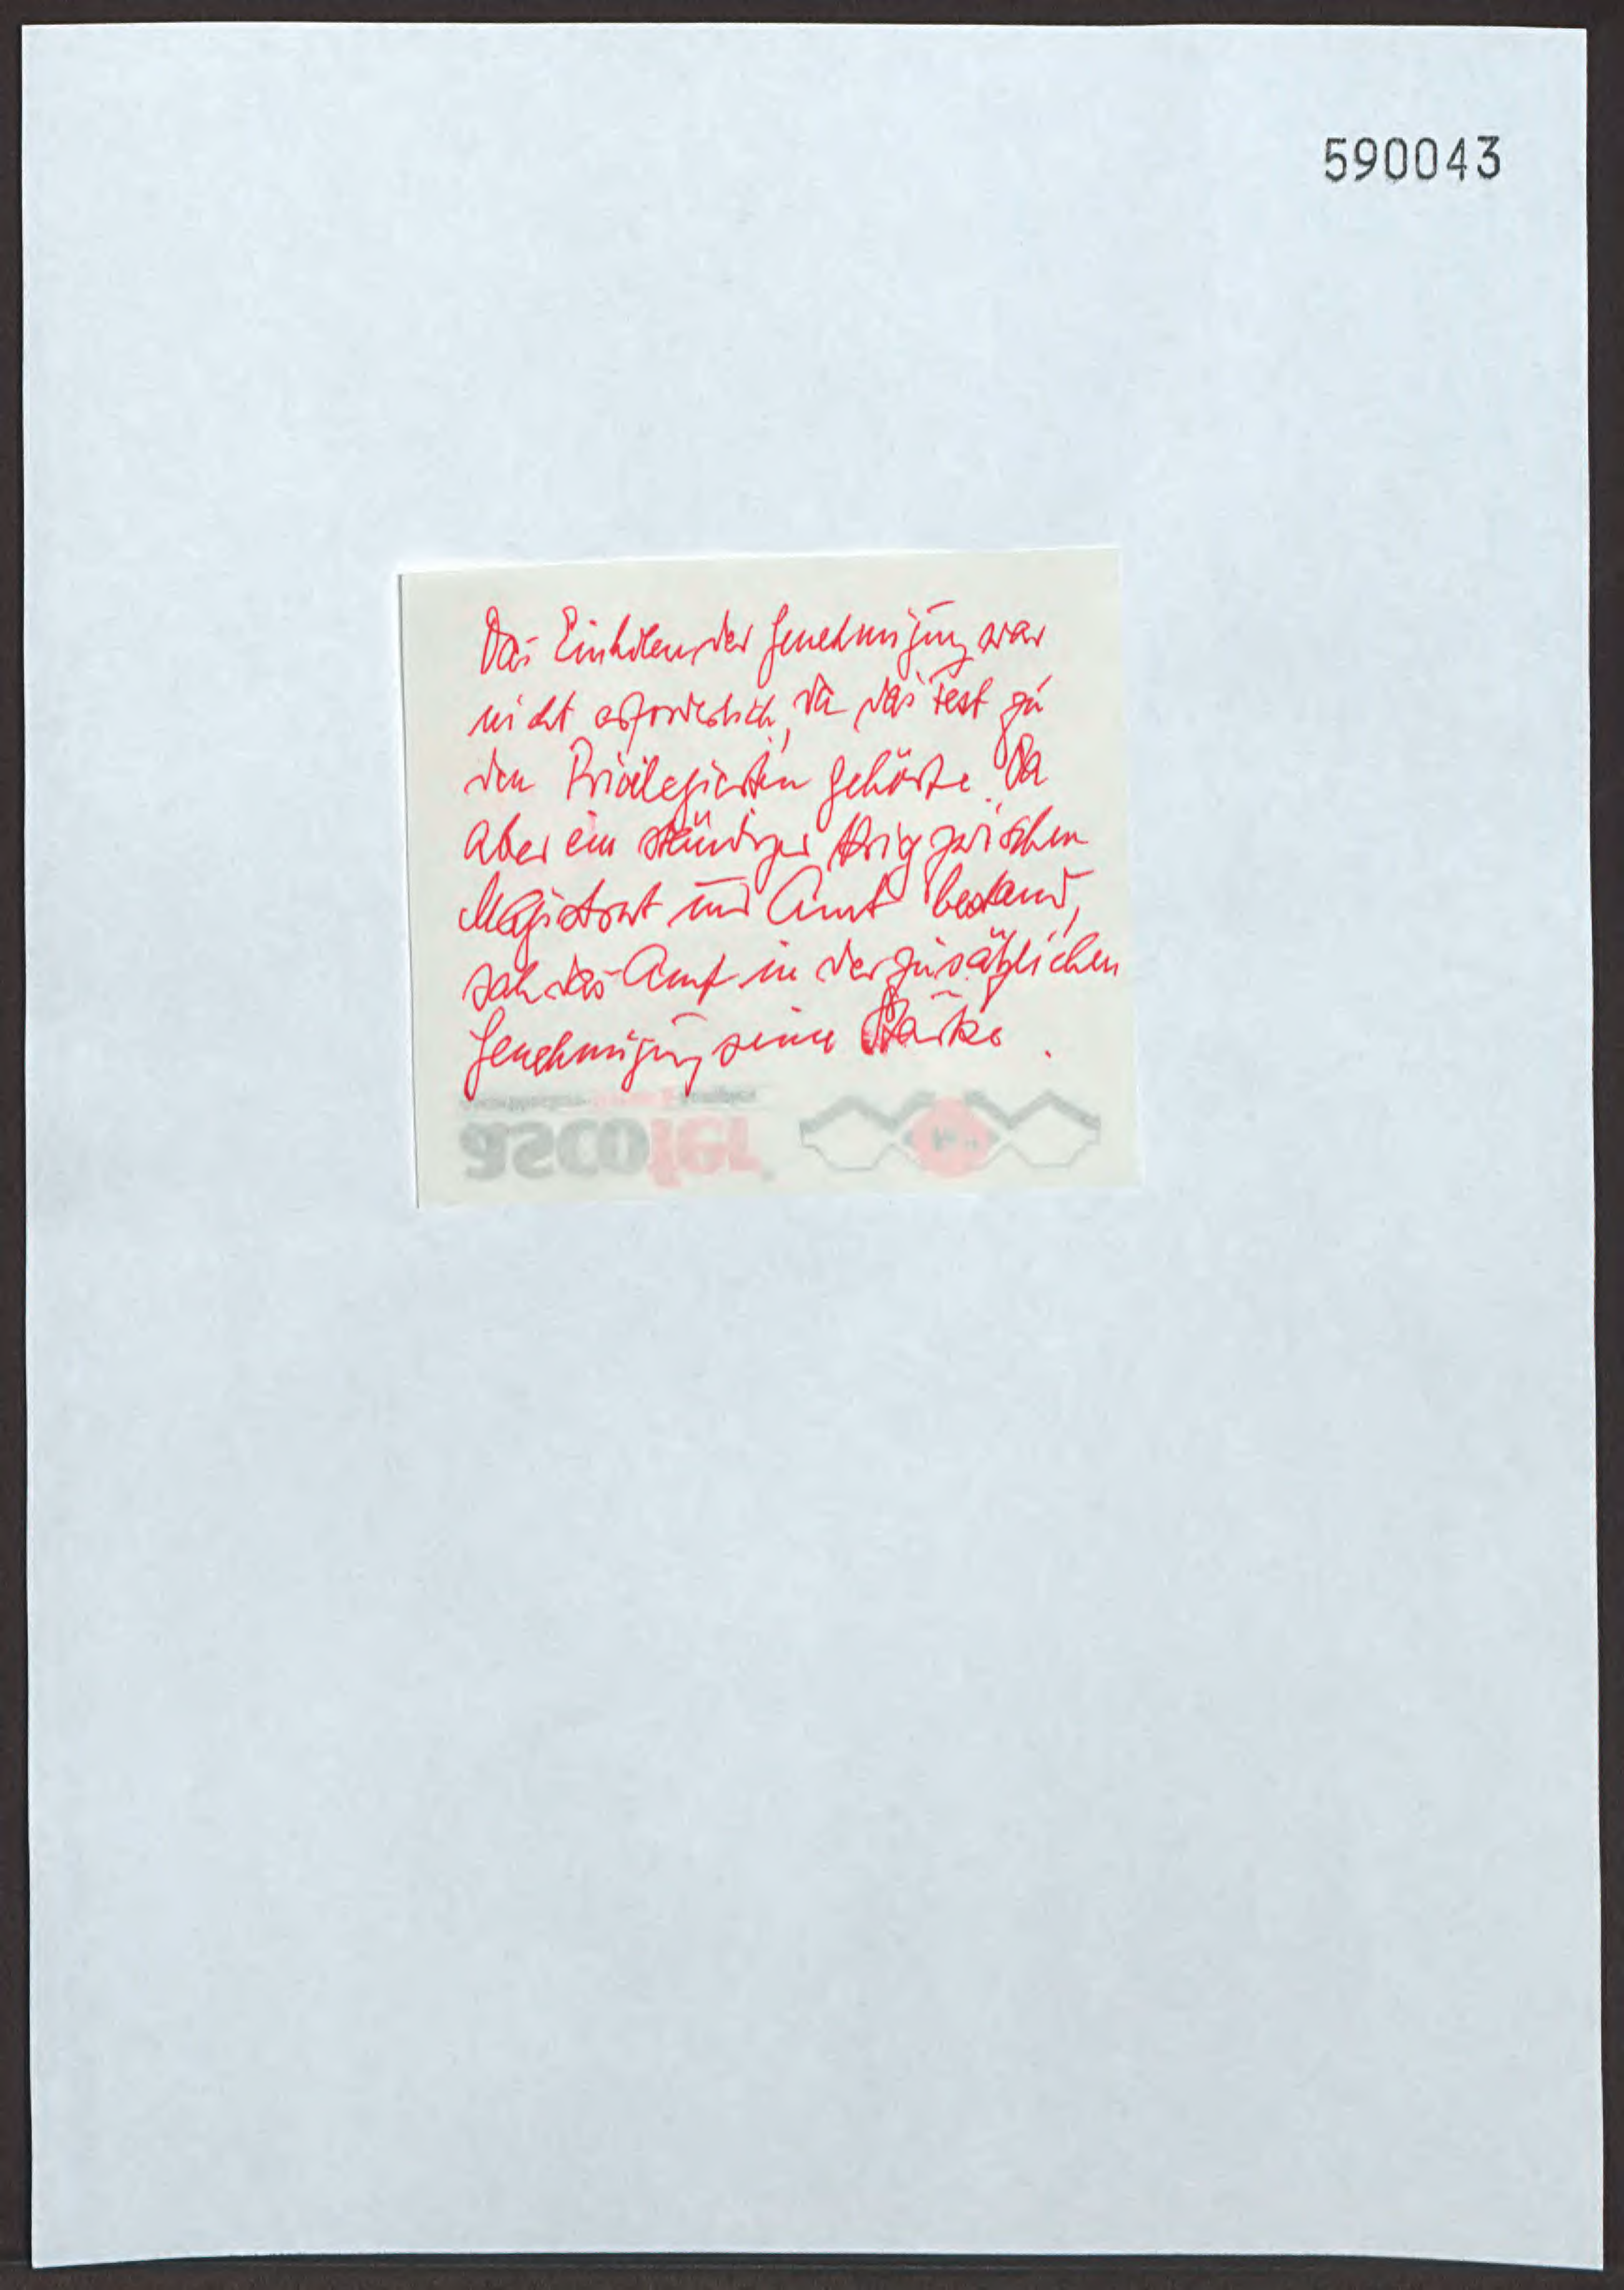 590043
Das Einholen der Genehmigung war
nicht erforderlich, da das Fest zu
den Privilegierten gehörte. Da
aber ein ständiger Krieg zwischen
Magistrat und Amt bestand,
sah das Amt in der zusätzlichen
Genehmigung seine Stärke.
ascofer